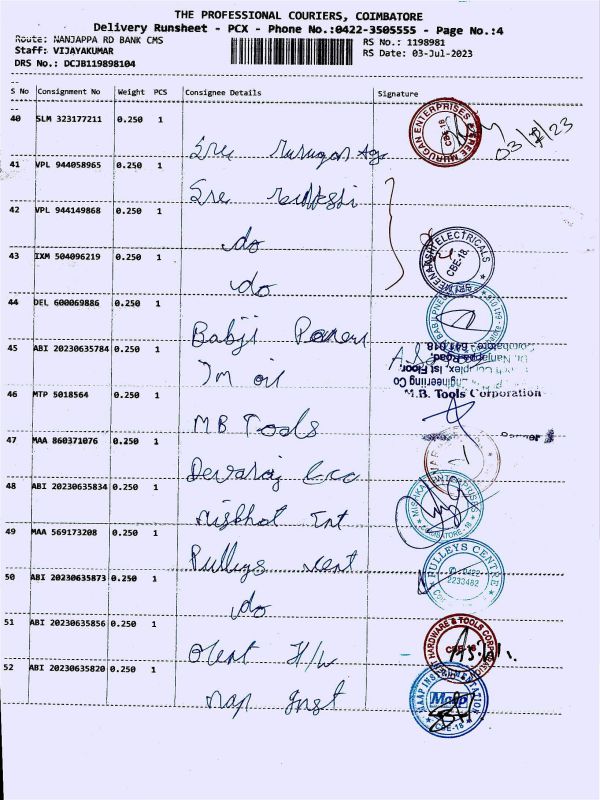 THE PROFESSIONAL COURIERS, COIMBATORE
Delivery Runsheet - PCX - Phone No.:0422-3505555 - Page No.:4
Route: NANJAPPA RD BANK CMS
RS No.: 1198981
Staff: VIJAYAKUMAR
RS Date: 03-Jul-2023
DRS No.: DCJB119898104
S No Consignment No Weight PCS Consignee Details Signature
40 SLM 323177211 0.250 1
Sree Murugan
MURUGAN ENTERPRISES
CBE-18
03/7/23
41 VPL 944058965 0.250 1
Sree
42 VPL 944149868 0.250 1
do
MEENAKSHI ELECTRICALS
CBE-18.
43 IXM 504096219 0.250 1
do
44 DEL 600069886 0.250 1
Babji
45 ABI 20230635784 0.250 1
Jm oil
Dr. Nanjappa Road,
Coimbatore - 641 018.
Ist Floor,
Engineering Co
46 MTP 5018564 0.250 1
M.B. Tools Corporation
MB Tools
47 MAA 860371076 0.250 1
Devaraj
48 ABI 20230635834 0.250 1
Int
49 MAA 569173208 0.250 1
Pulleys cent
PULLEYS CENTRE
0422
2233482
50 ABI 20230635873 0.250 1
do
51 ABI 20230635856 0.250 1
H/W
HARDWARE & TOOLS
CBE-18
52 ABI 20230635820 0.250 1
Map Inst
MAAP INSTRUMENTATION
Maap
CBE-18